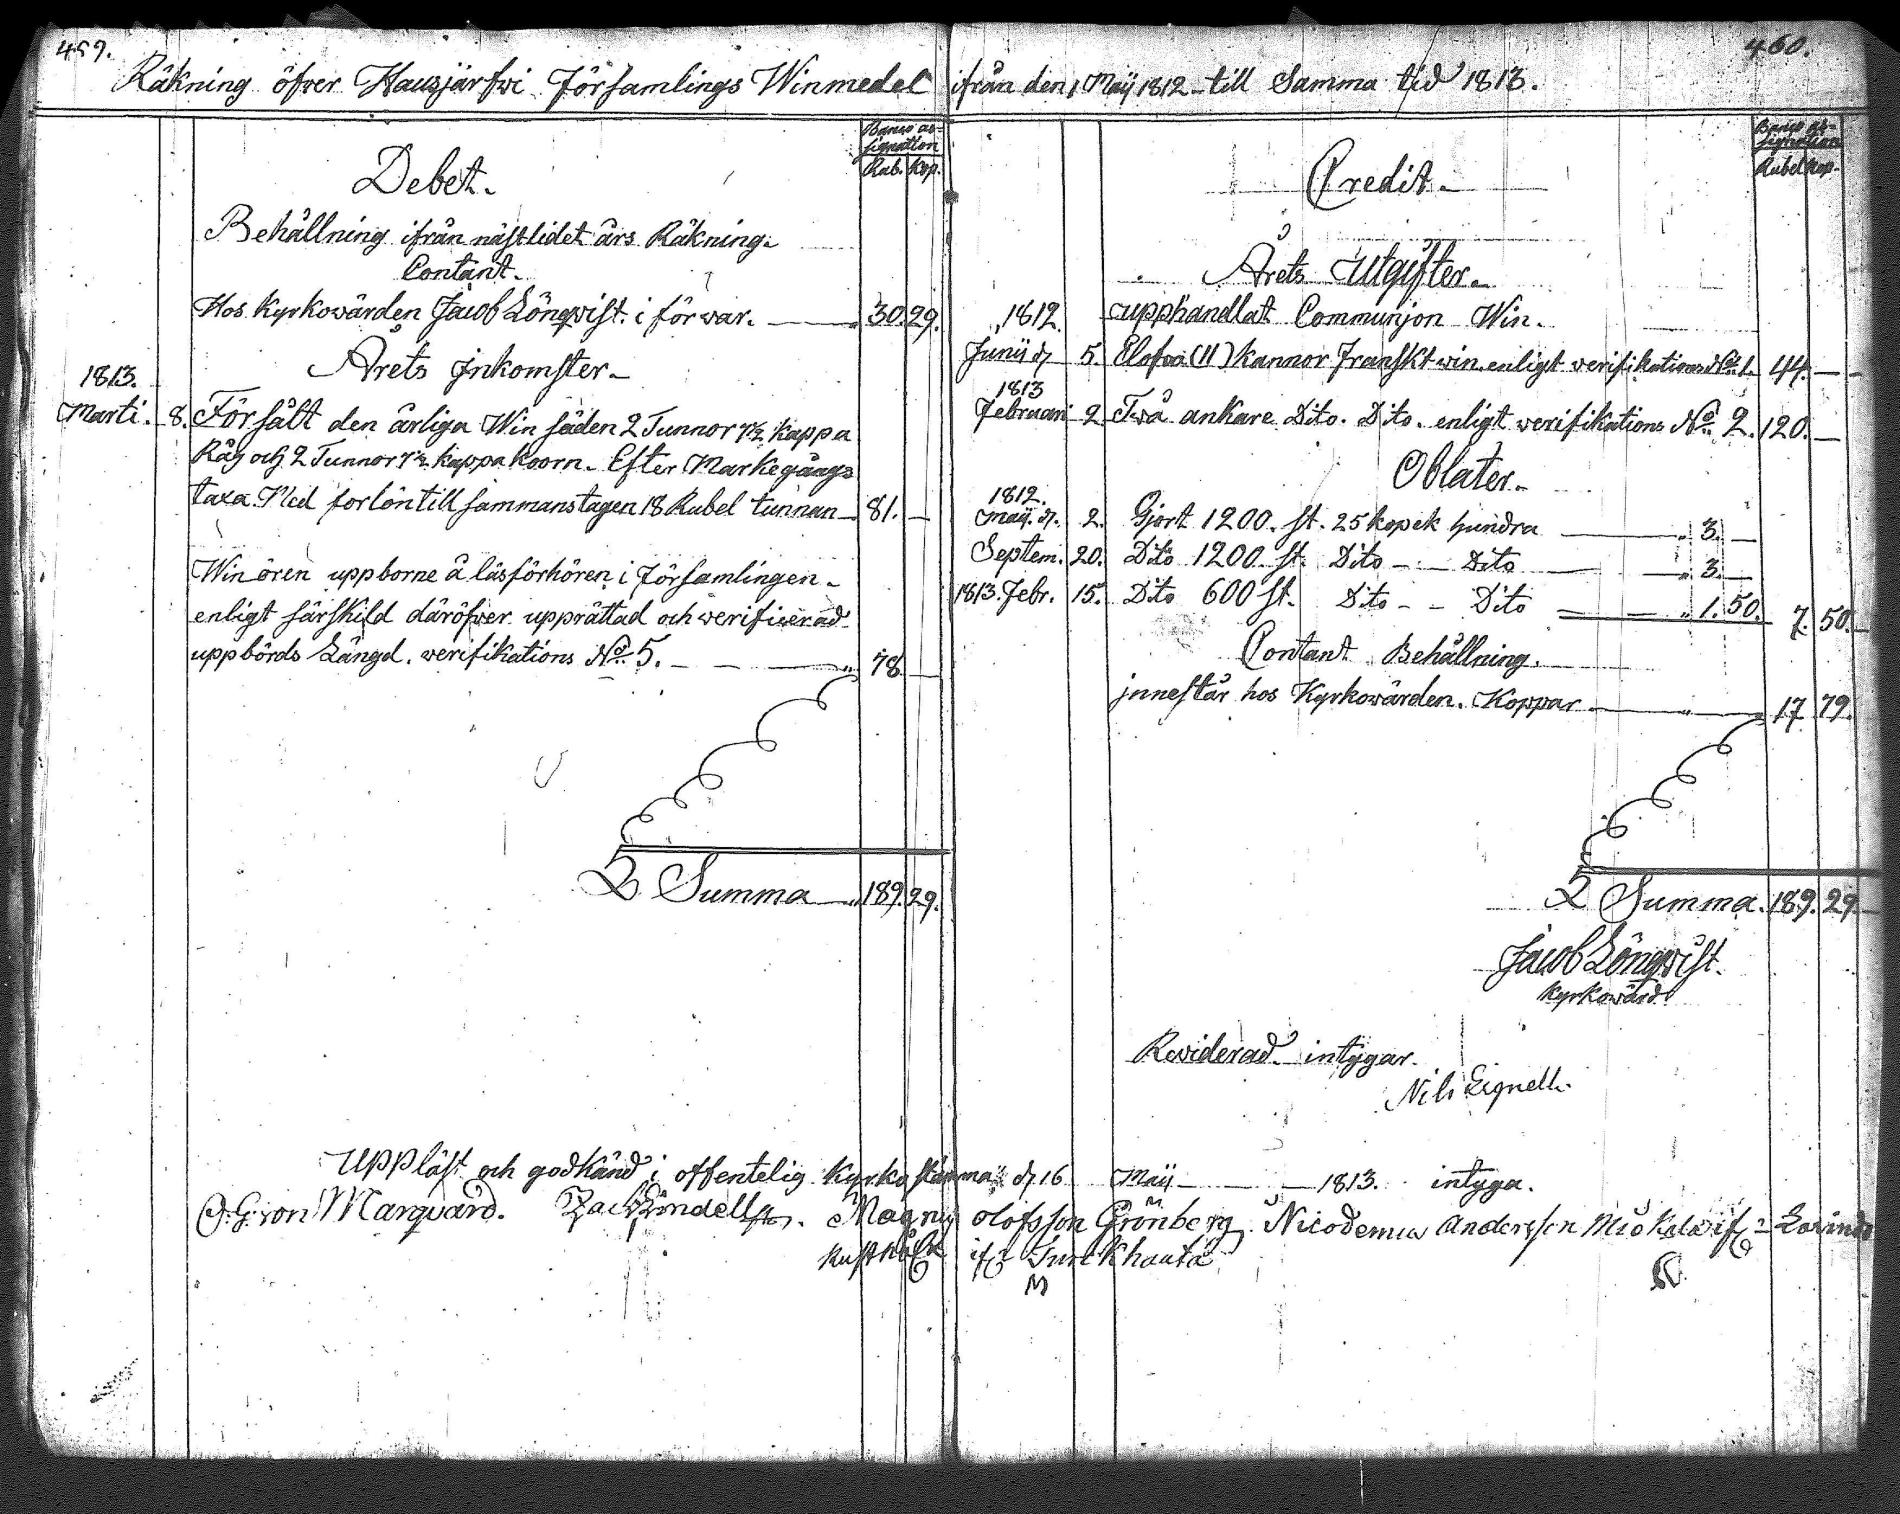 459.
460.
Räkning öfver Hausjärfwi Församlings Winmedel ifrån den 1 Maij 1812 till Samma tid 1813.
Banco as-
signation
Rub. Kop.
Debet.
Behållning ifrån nästlidet års Räkning.
Contant.
Hos Kyrkowärden Jacob Lönqvist i förwar. 30. 29.
Årets Inkomster.
1813.
Marti. 8. Försålt den årliga Win säden 2 Tunnor 7½ kappa
Råg och 2 Tunnor 7½ kappa koorn. Efter Markegångs
taxa. Med forlön till sammanstagen 18 Rubel tunnan 81. —
Win ören uppborne å läsförhören i Församlingen
enligt särskild däröfver upprättad och verificerad
uppbörds Längd. verifikations No. 5. 78 —
Summa 189. 29.
Banco as-
signation
Rubel Kop.
Credit.
Årets Utgifter.
1812. upphandlat Communion Win.
Junii d. 5. Elofva (11) kannor Franskt win enligt verifikations No. 1. 44. —
1813
Februari 2 Twå ankare Dito. Dito. enligt verifikations No. 2. 120. —
Oblater.
1812.
Maij. d. 2. Gjort 1200. st. 25 kopek hundra 3. —
Septem. 20. Dito 1200. st. Dito — Dito 3. —
1813. Febr. 15. Dito 600 st. Dito - - Dito 1. 50. 7. 50.
Contant Behållning.
innestår hos Kyrkowärden. Koppar 17 79.
Summa. 189. 29.
Jacob Lönqvist.
Kyrkowärd.
Reviderad intygar.
Nils Eignell.
Uppläst och godkänd i offentelig Kyrko stämma d. 16 Maij 1813. intyga.
C. G. von Marqvard. Zach. Lindell Magnus Olofsson Grönberg. Nicodemus Andersson
Rusthåll if. Turkhauta
M